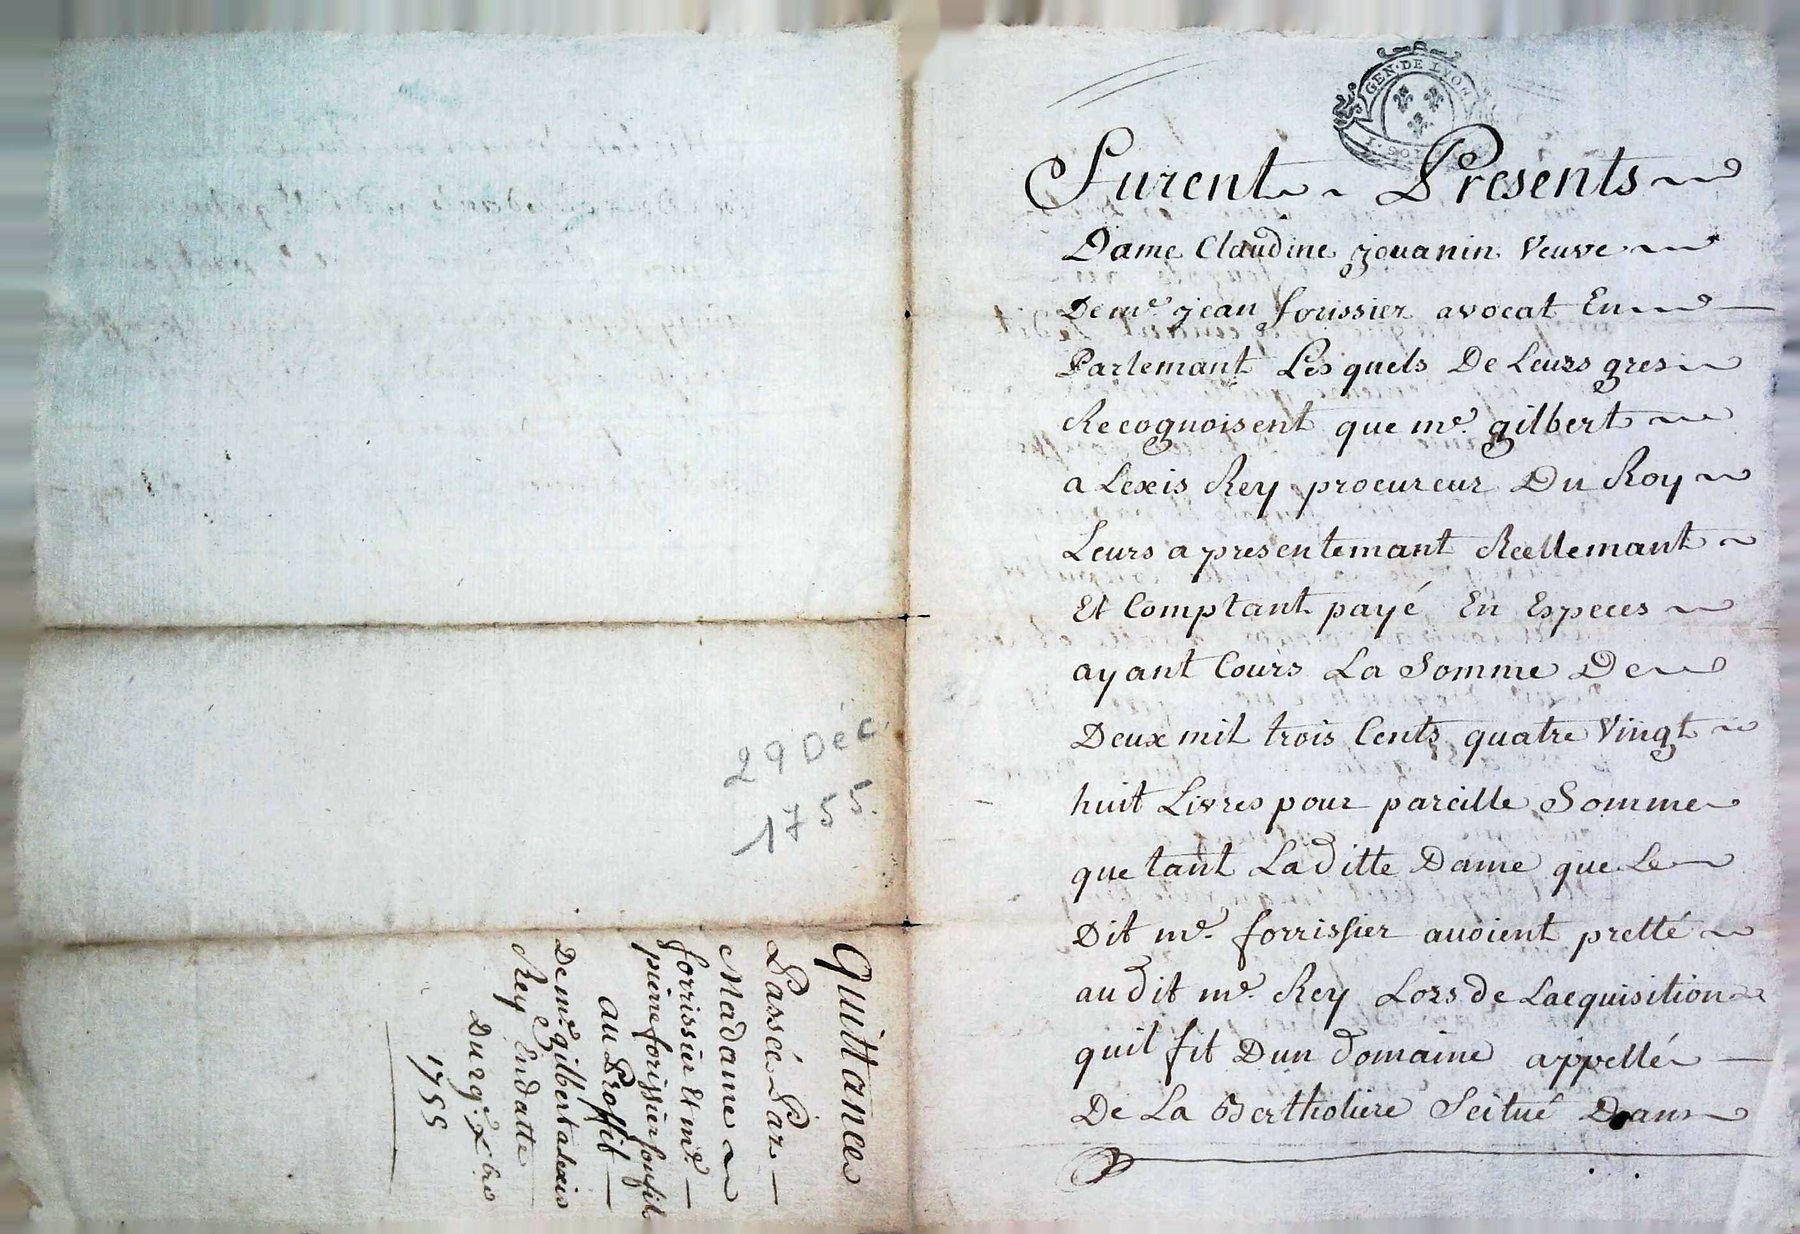 29 Déc.
1755.
Quittance
Passée Par
Madame
forrissier Et me.
pierre forissier son fil
au Proffit
De me. gilbert alexis
Rey En datte
Du 29e. xbre
1755
GEN. DE LYON
Furent Presents
Dame Claudine jouanin Veuve
De me. jean forissier avocat En
Parlemant Les quels De Leurs gres
Recognoisent que me. gilbert
a Lexis Rey procureur Du Roy
Leurs a presentemant Reellemant
Et Comptant payé En Especes
ayant Cours La Somme De
Deux mil trois Cents quatre Vingt
huit Livres pour pareille Somme
que tant La ditte Dame que Le
Dit me. forrissier avoient pretté
au dit me. Rey Lors de Lacquisition
quil fit Dun domaine appellé
De La Bertholiere Scitué Dans